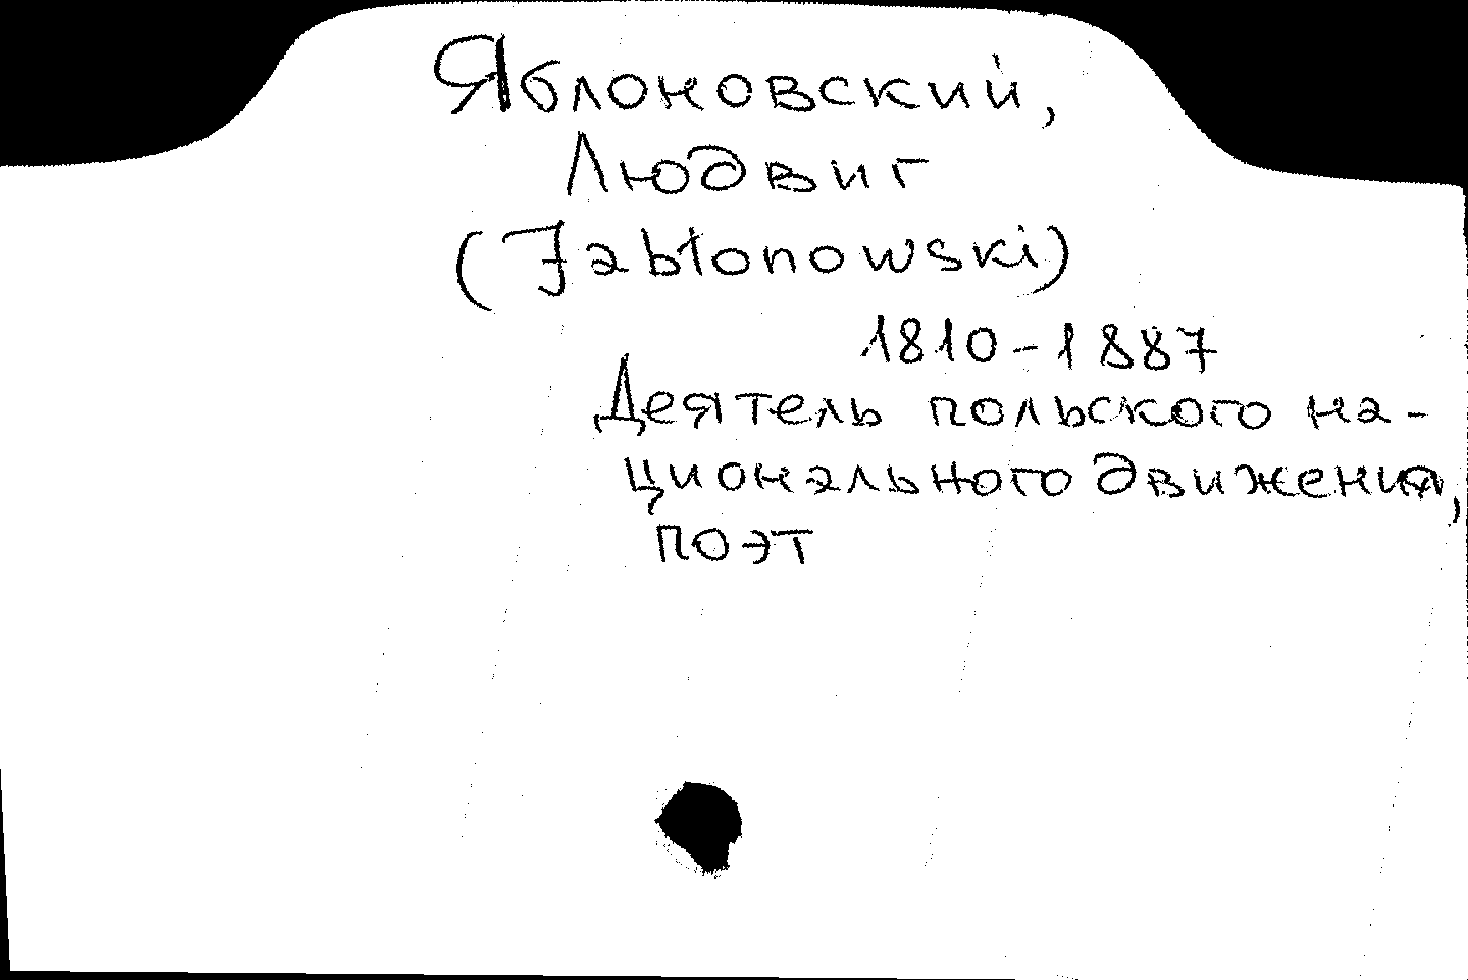 Яблоновский,
Людвиг
(Jabłonowski)
1810-1887
Деятель польского на-
ционального движения,
поэт